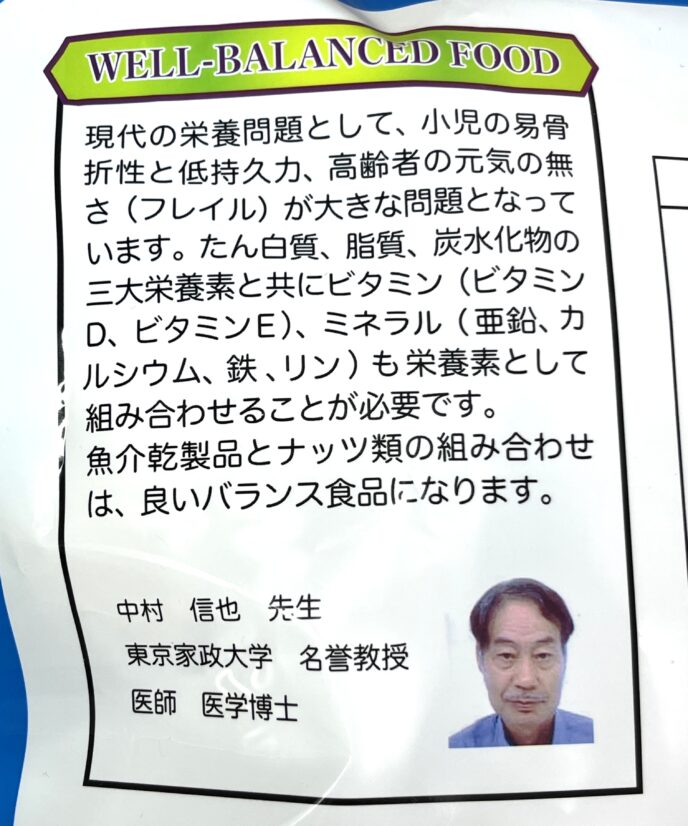 WELL-BALANCED FOOD
現代の栄養問題として、小児の易骨
折性と低持久力、高齢者の元気の無
さ（フレイル）が大きな問題となって
います。たん白質、脂質、炭水化物の
三大栄養素と共にビタミン（ビタミン
D、ビタミンE）、ミネラル（亜鉛、カ
ルシウム、鉄、リン）も栄養素として
組み合わせることが必要です。
魚介乾製品とナッツ類の組み合わせ
は、良いバランス食品になります。
中村　信也　先生
東京家政大学　名誉教授
医師　医学博士